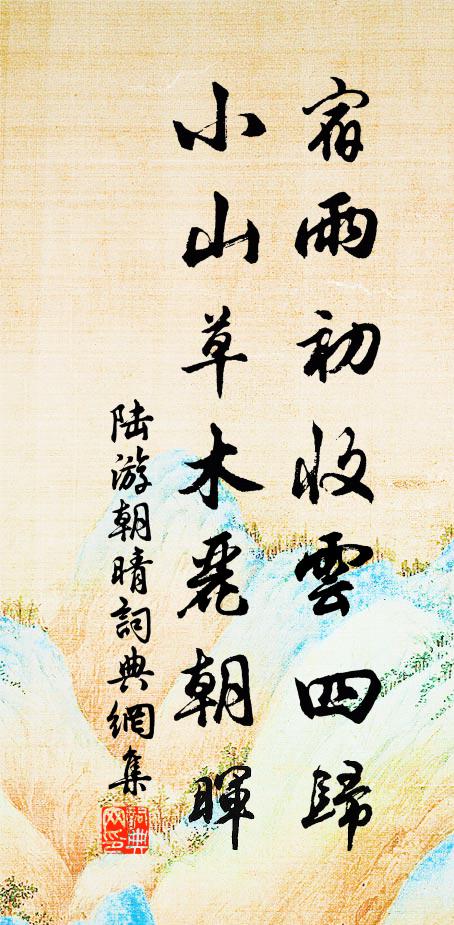 宿雨初收雲四歸
小山草木麗朝暉
陆游朝晴詞典網集
詞典
网印